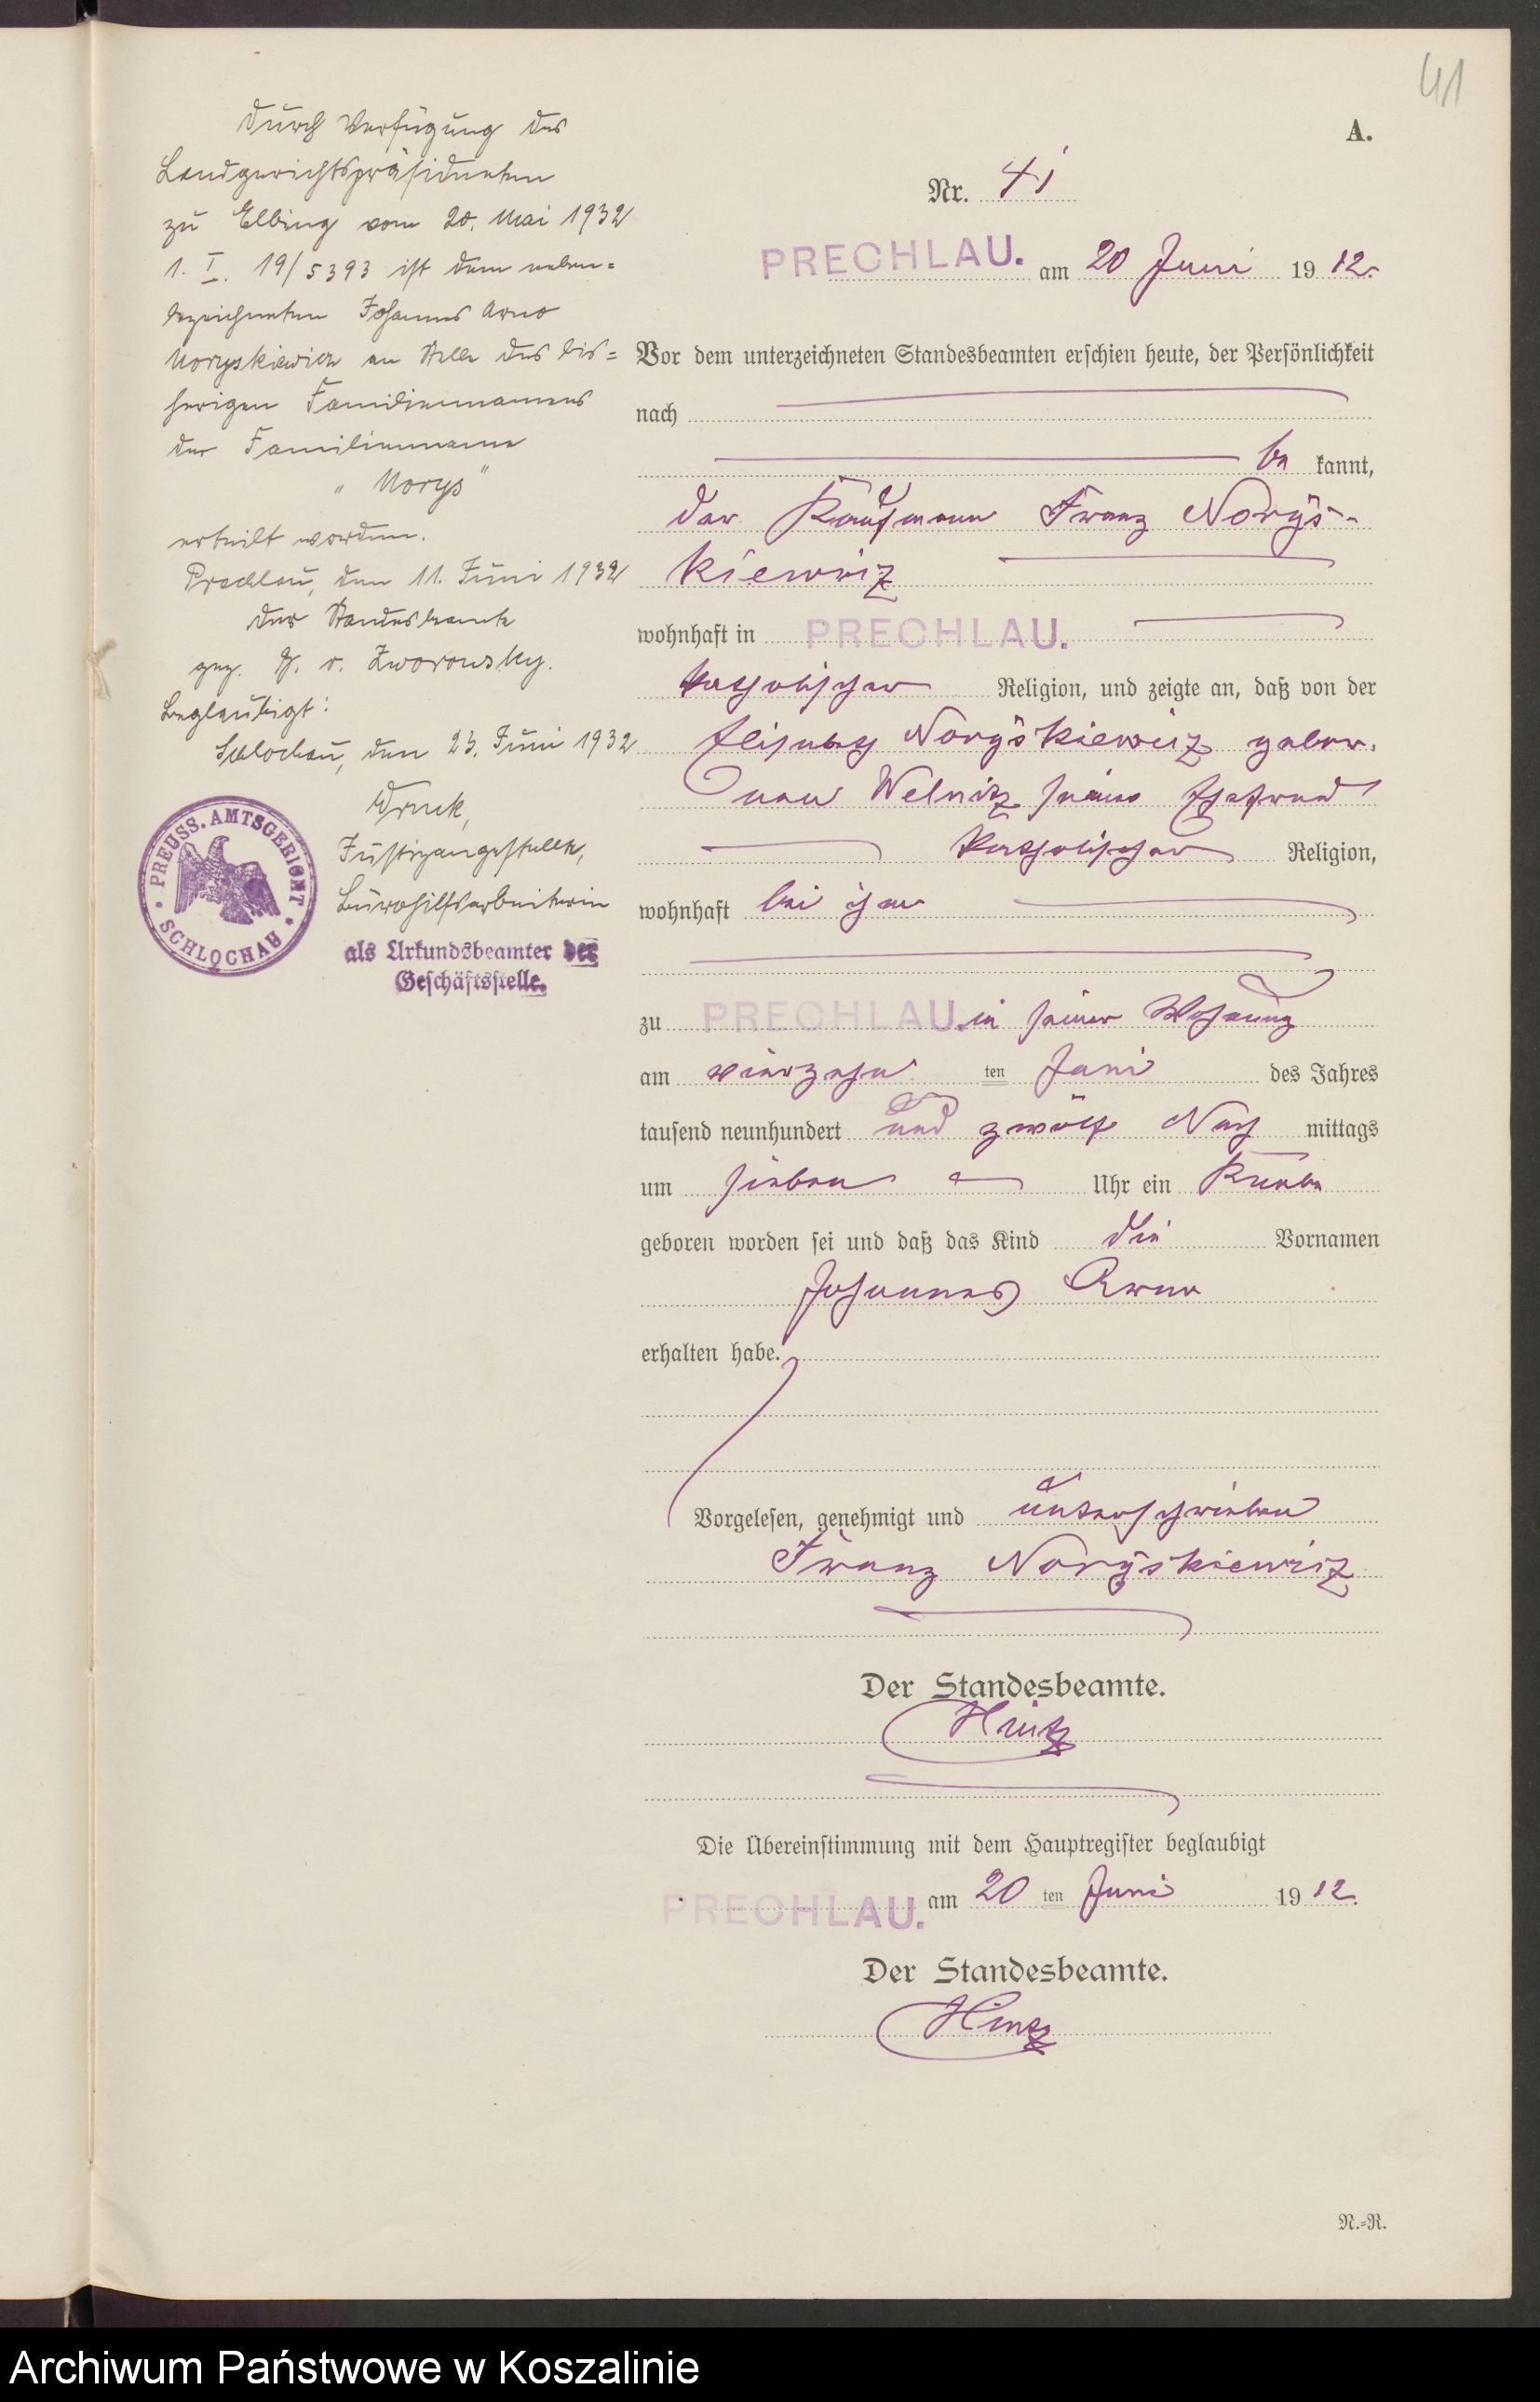 41
A.
Nr. 41
PRECHLAU. am 20 Juni 1912.
Vor dem unterzeichneten Standesbeamten erschien heute, der Persönlichkeit
nach
be kannt,
der Kaufmann Franz Norys-
kiewicz
wohnhaft in PRECHLAU.
katholischer Religion, und zeigte an, daß von der
Elisabeth Noryskiewicz gebor.
nen Welnitz seiner Ehefrau
katholischer Religion,
wohnhaft bei ihm
zu PRECHLAU. in seiner Wohnung
am vierzehn ten Juni des Jahres
tausend neunhundert und zwölf Nach mittags
um sieben Uhr ein Knabe
geboren worden sei und daß das Kind die Vornamen
Johannes Arno
erhalten habe.
Vorgelesen, genehmigt und unterschrieben
Franz Noryskiewicz
Der Standesbeamte.
Hintz
Die Übereinstimmung mit dem Hauptregister beglaubigt
PRECHLAU. am 20 ten Juni 1912.
Der Standesbeamte.
Hintz
N.-R.
Durch Verfügung des
Landgerichtspräsidenten
zu Elbing vom 20. Mai 1932
1. I. 19/5393 ist dem neben=
bezeichneten Johannes Arno
Noryskiewicz an Stelle des bis=
herigen Familiennamens
der Familienname
"Norys"
erteilt worden.
Prechlau, den 11. Juni 1932
Der Standesbeamte
gez. v. Zworowsky.
Beglaubigt:
Schlochau, den 23. Juni 1932
Justizangestellte,
Bürohilfsarbeiterin
als Urkundsbeamter der
Geschäftsstelle.
PREUSS. AMTSGERICHT
SCHLOCHAU
Archiwum Państwowe w Koszalinie